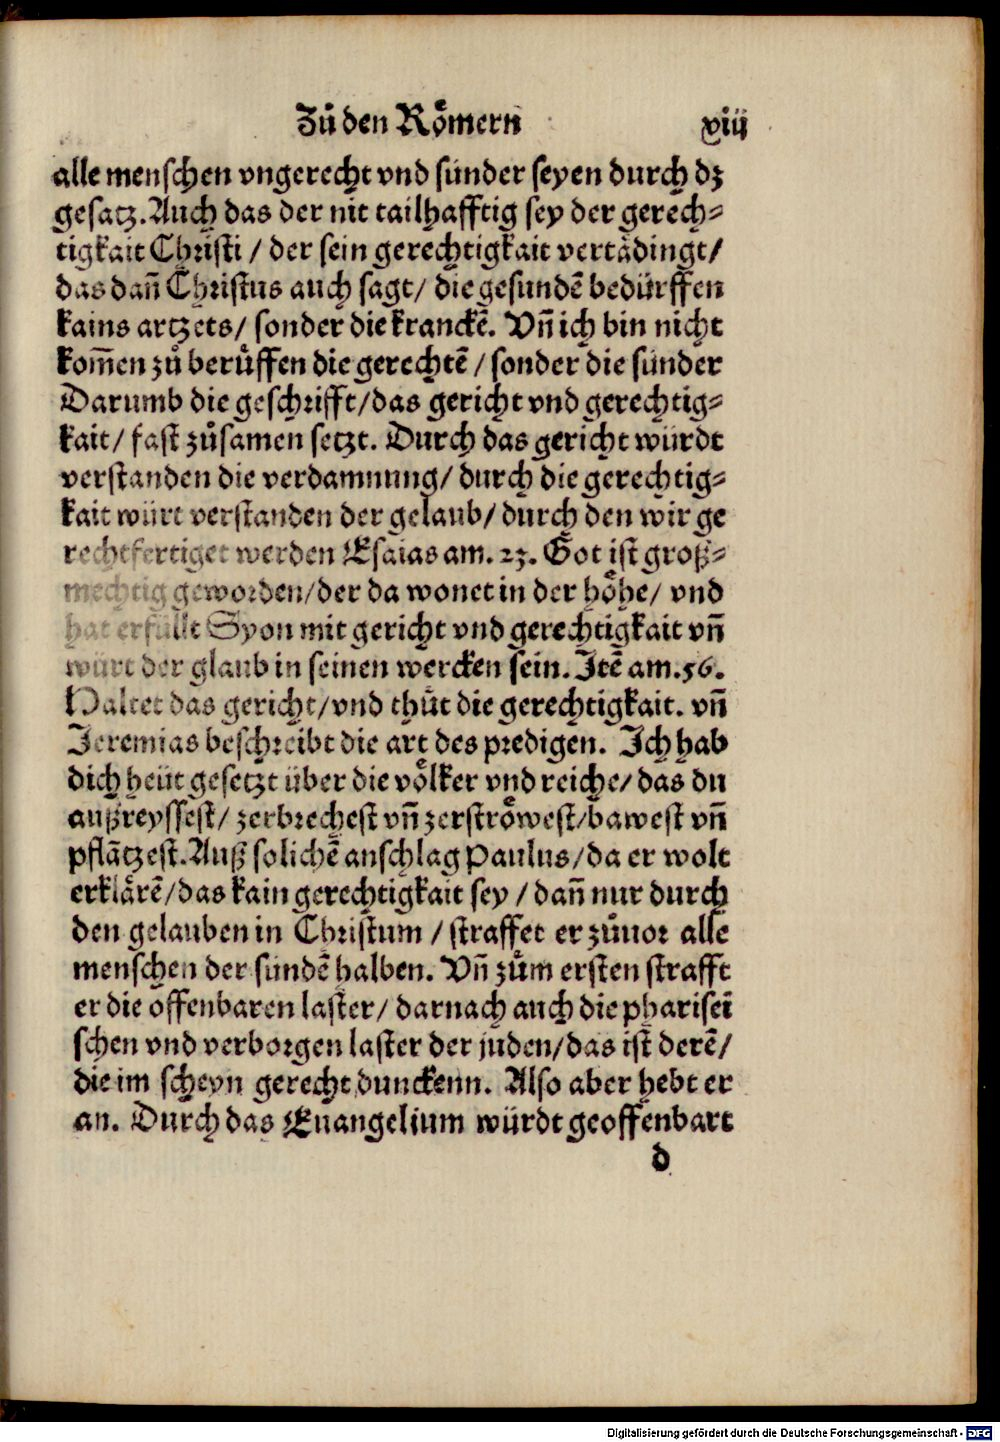 Zů den Roͤmern xiij
alle menschen vngerecht vnd sünder seyen durch dz
gesatz. Auch das der nit tailhafftig sey der gerech⸗
tigkait Christi / der sein gerechtigkait vertådingt/
das dañ Christus auch sagt/ die gesundē bedürffen
kains artzets/ sonder die kranckē. Vñ ich bin nicht
kom̄en zů berůffen die gerechtē / sonder die sünder
Darumb die geschrifft/das gericht vnd gerechtig⸗
kait/ fast zůsamen setzt. Durch das gericht würdt
verstanden die verdamnung/ durch die gerechtig⸗
kait würt verstanden der gelaub/ durch den wir ge
rechtfertiget werden Esaias am. 23. Got ist groß⸗
mechtig geworden/der da wonet in der hoͤhe/ vnd
hat erfüllt Syon mit gericht vnd gerechtigkait vñ
würt der glaub in seinen wercken sein. Itē am.56.
Haltet das gericht/vnd thůt die gerechtigkait. vñ
Jeremias beschreibt die art des predigen. Ich hab
dich heüt gesetzt über die voͤlker vnd reiche/das du
außreyssest/ zerbrechest vñ zerstroͤwest/bawest vñ
pflātzest. Auß solichē anschlag Paulus/da er wolt
erklårē/das kain gerechtigkait sey / dañ nur durch
den gelauben in Christum / straffet er zůuor alle
menschen der sündē halben. Vñ zům ersten strafft
er die offenbaren laster/ darnach auch die phariseī
schen vnd verborgen laster der juden/das ist derē/
die im scheyn gerecht dunckenn. Also aber hebt er
an. Durch das Euangelium würdt geoffenbart
d
Digitalisierung gefördert durch die Deutsche Forschungsgemeinschaft - DFG